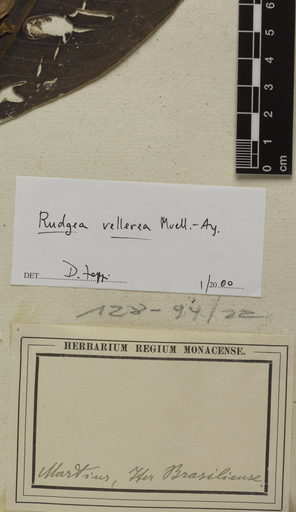 6
5
4
3
2
1
0
cm
Rudgea vellerea Muell.-Ag.
DET. D. Zappi
1/2000
128-94/22
HERBARIUM REGIUM MONACENSE.
Martius, Iter Brasiliense,